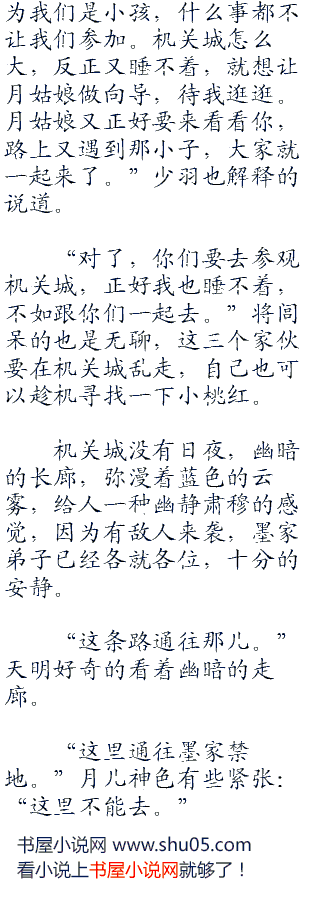 为我们是小孩，什么事都不
让我们参加。机关城怎么
大，反正又睡不着，就想让
月姑娘做向导，待我逛逛。
月姑娘又正好要来看看你，
路上又遇到那小子，大家就
一起来了。”少羽也解释的
说道。
“对了，你们要去参观
机关城，正好我也睡不着，
不如跟你们一起去。”将闾
呆的也是无聊，这三个家伙
要在机关城乱走，自己也可
以趁机寻找一下小桃红。
机关城没有日夜，幽暗
的长廊，弥漫着蓝色的云
雾，给人一种幽静肃穆的感
觉，因为有敌人来袭，墨家
弟子已经各就各位，十分的
安静。
“这条路通往那儿。”
天明好奇的看着幽暗的走
廊。
“这里通往墨家禁
地。”月儿神色有些紧张：
“这里不能去。”
书屋小说网 www.shu05.com
看小说上书屋小说网就够了！